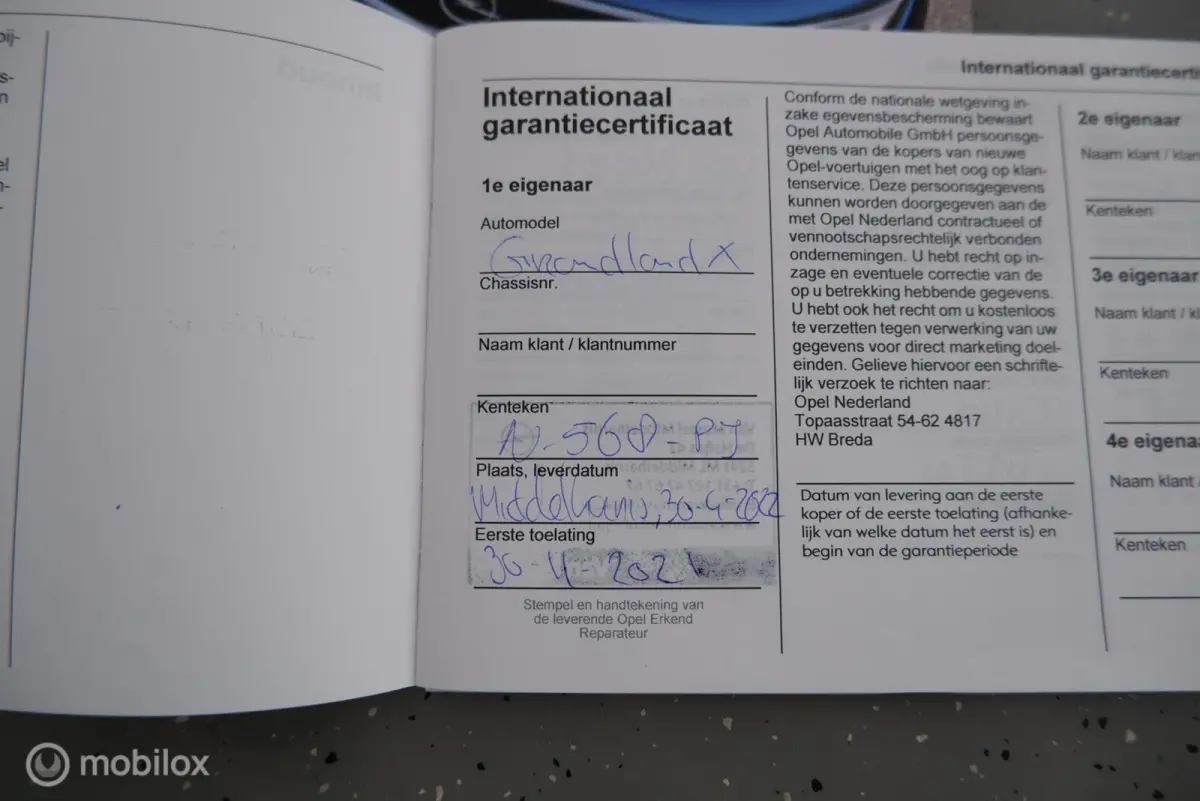 Internationaal
garantiecertificaat
1e eigenaar
Automodel
Grandland X
Chassisnr.
Naam klant / klantnummer
Kenteken
N-568-PJ
Plaats, leverdatum
Middelharnis, 30-4-2022
Eerste toelating
30-4-2021
Stempel en handtekening van
de leverende Opel Erkend
Reparateur
Conform de nationale wetgeving in-
zake egevensbescherming bewaart
Opel Automobile GmbH persoonsge-
gevens van de kopers van nieuwe
Opel-voertuigen met het oog op klan-
tenservice. Deze persoonsgegevens
kunnen worden doorgegeven aan de
met Opel Nederland contractueel of
vennootschapsrechtelijk verbonden
ondernemingen. U hebt recht op in-
zage en eventuele correctie van de
op u betrekking hebbende gegevens.
U hebt ook het recht om u kostenloos
te verzetten tegen verwerking van uw
gegevens voor direct marketing doel-
einden. Gelieve hiervoor een schrifte-
lijk verzoek te richten naar:
Opel Nederland
Topaasstraat 54-62 4817
HW Breda
Datum van levering aan de eerste
koper of de eerste toelating (afhanke-
lijk van welke datum het eerst is) en
begin van de garantieperiode
Internationaal garantiecerti
2e eigenaar
Naam klant / klan
Kenteken
3e eigenaar
Naam klant / kl
Kenteken
4e eigena
Naam klant /
Kenteken
mobilox